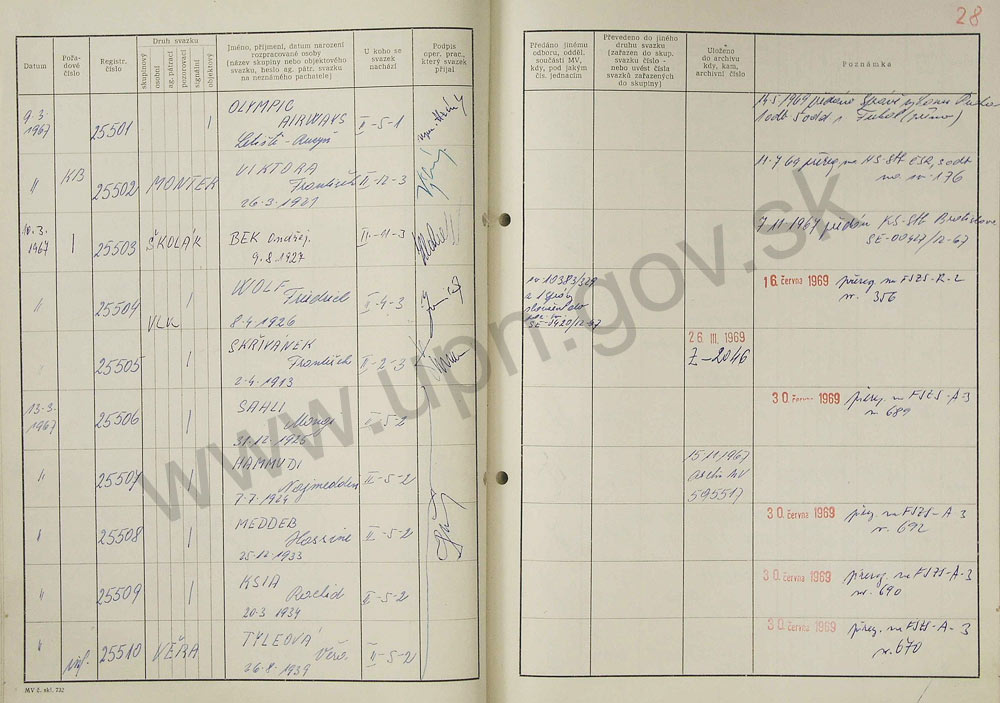 28
Datum
Pořadové číslo
Registr. číslo
Druh svazku
skupinový
osobní
ag. pátrací
pozorovací
signální
objektový
Jméno, příjmení, datum narození
rozpracované osoby
(název skupiny nebo objektového
svazku, heslo ag. pátr. svazku
na neznámého pachatele)
U koho se
svazek
nachází
Podpis
oper. prac.,
který svazek
přijal
Předáno jinému
odboru, odděl.
součásti MV,
kdy, pod jakým
čís. jednacím
Převedeno do jiného
druhu svazku
(zařazen do skup.
svazku číslo -
nebo uvést čísla
svazků zařazených
do skupiny)
Uloženo
do archivu
kdy, kam,
archivní číslo
Poznámka
9.3. 1967 25501 OLYMPIC AIRWAYS II-5-1
14.5.1969
" KB 25502 MONTER VIKTORA František II-12-3
26.3.1931
11.7.69 přereg. na
176
10.3. 1967 25503 ŠKOLÁK BEK Ondřej. II-11-3
9.8.1927
7.11.1967 předán KS-StB Bratislava
SE-00427/12-67
" 25504 VLK WOLF Friedrich II-4-3
8.4.1926
SE-0420/12-67
16. června 1969 přereg. na FSZS-R-2
nr. 356
" 25505 SKŘIVANEK František II-2-3
2.4.1913
26. III. 1969
Z-2046
13.3. 1967 25506 SAHLI Mongi II-5-2
31.12.1925
30. června 1969 přereg. na FSZS-A-3
nr. 689
" 25507 HAMMUDI Najmeddin II-5-2
7.7.1924
15.11.1967
Archiv MV
595517
" 25508 MEDDEB Hassine II-5-2
25.12.1933
30. června 1969 přereg. na FSZS-A-3
nr. 692
" 25509 KSIA Rachid II-5-2
20.3.1934
30. června 1969 přereg. na FSZS-A-3
nr. 690
" 25510 VĚRA TÝLEOVÁ Věra. II-5-2
26.8.1939
30. června 1969 přereg. na FSZS-A-3
nr. 670
MV č. skl. 732
www.upn.gov.sk